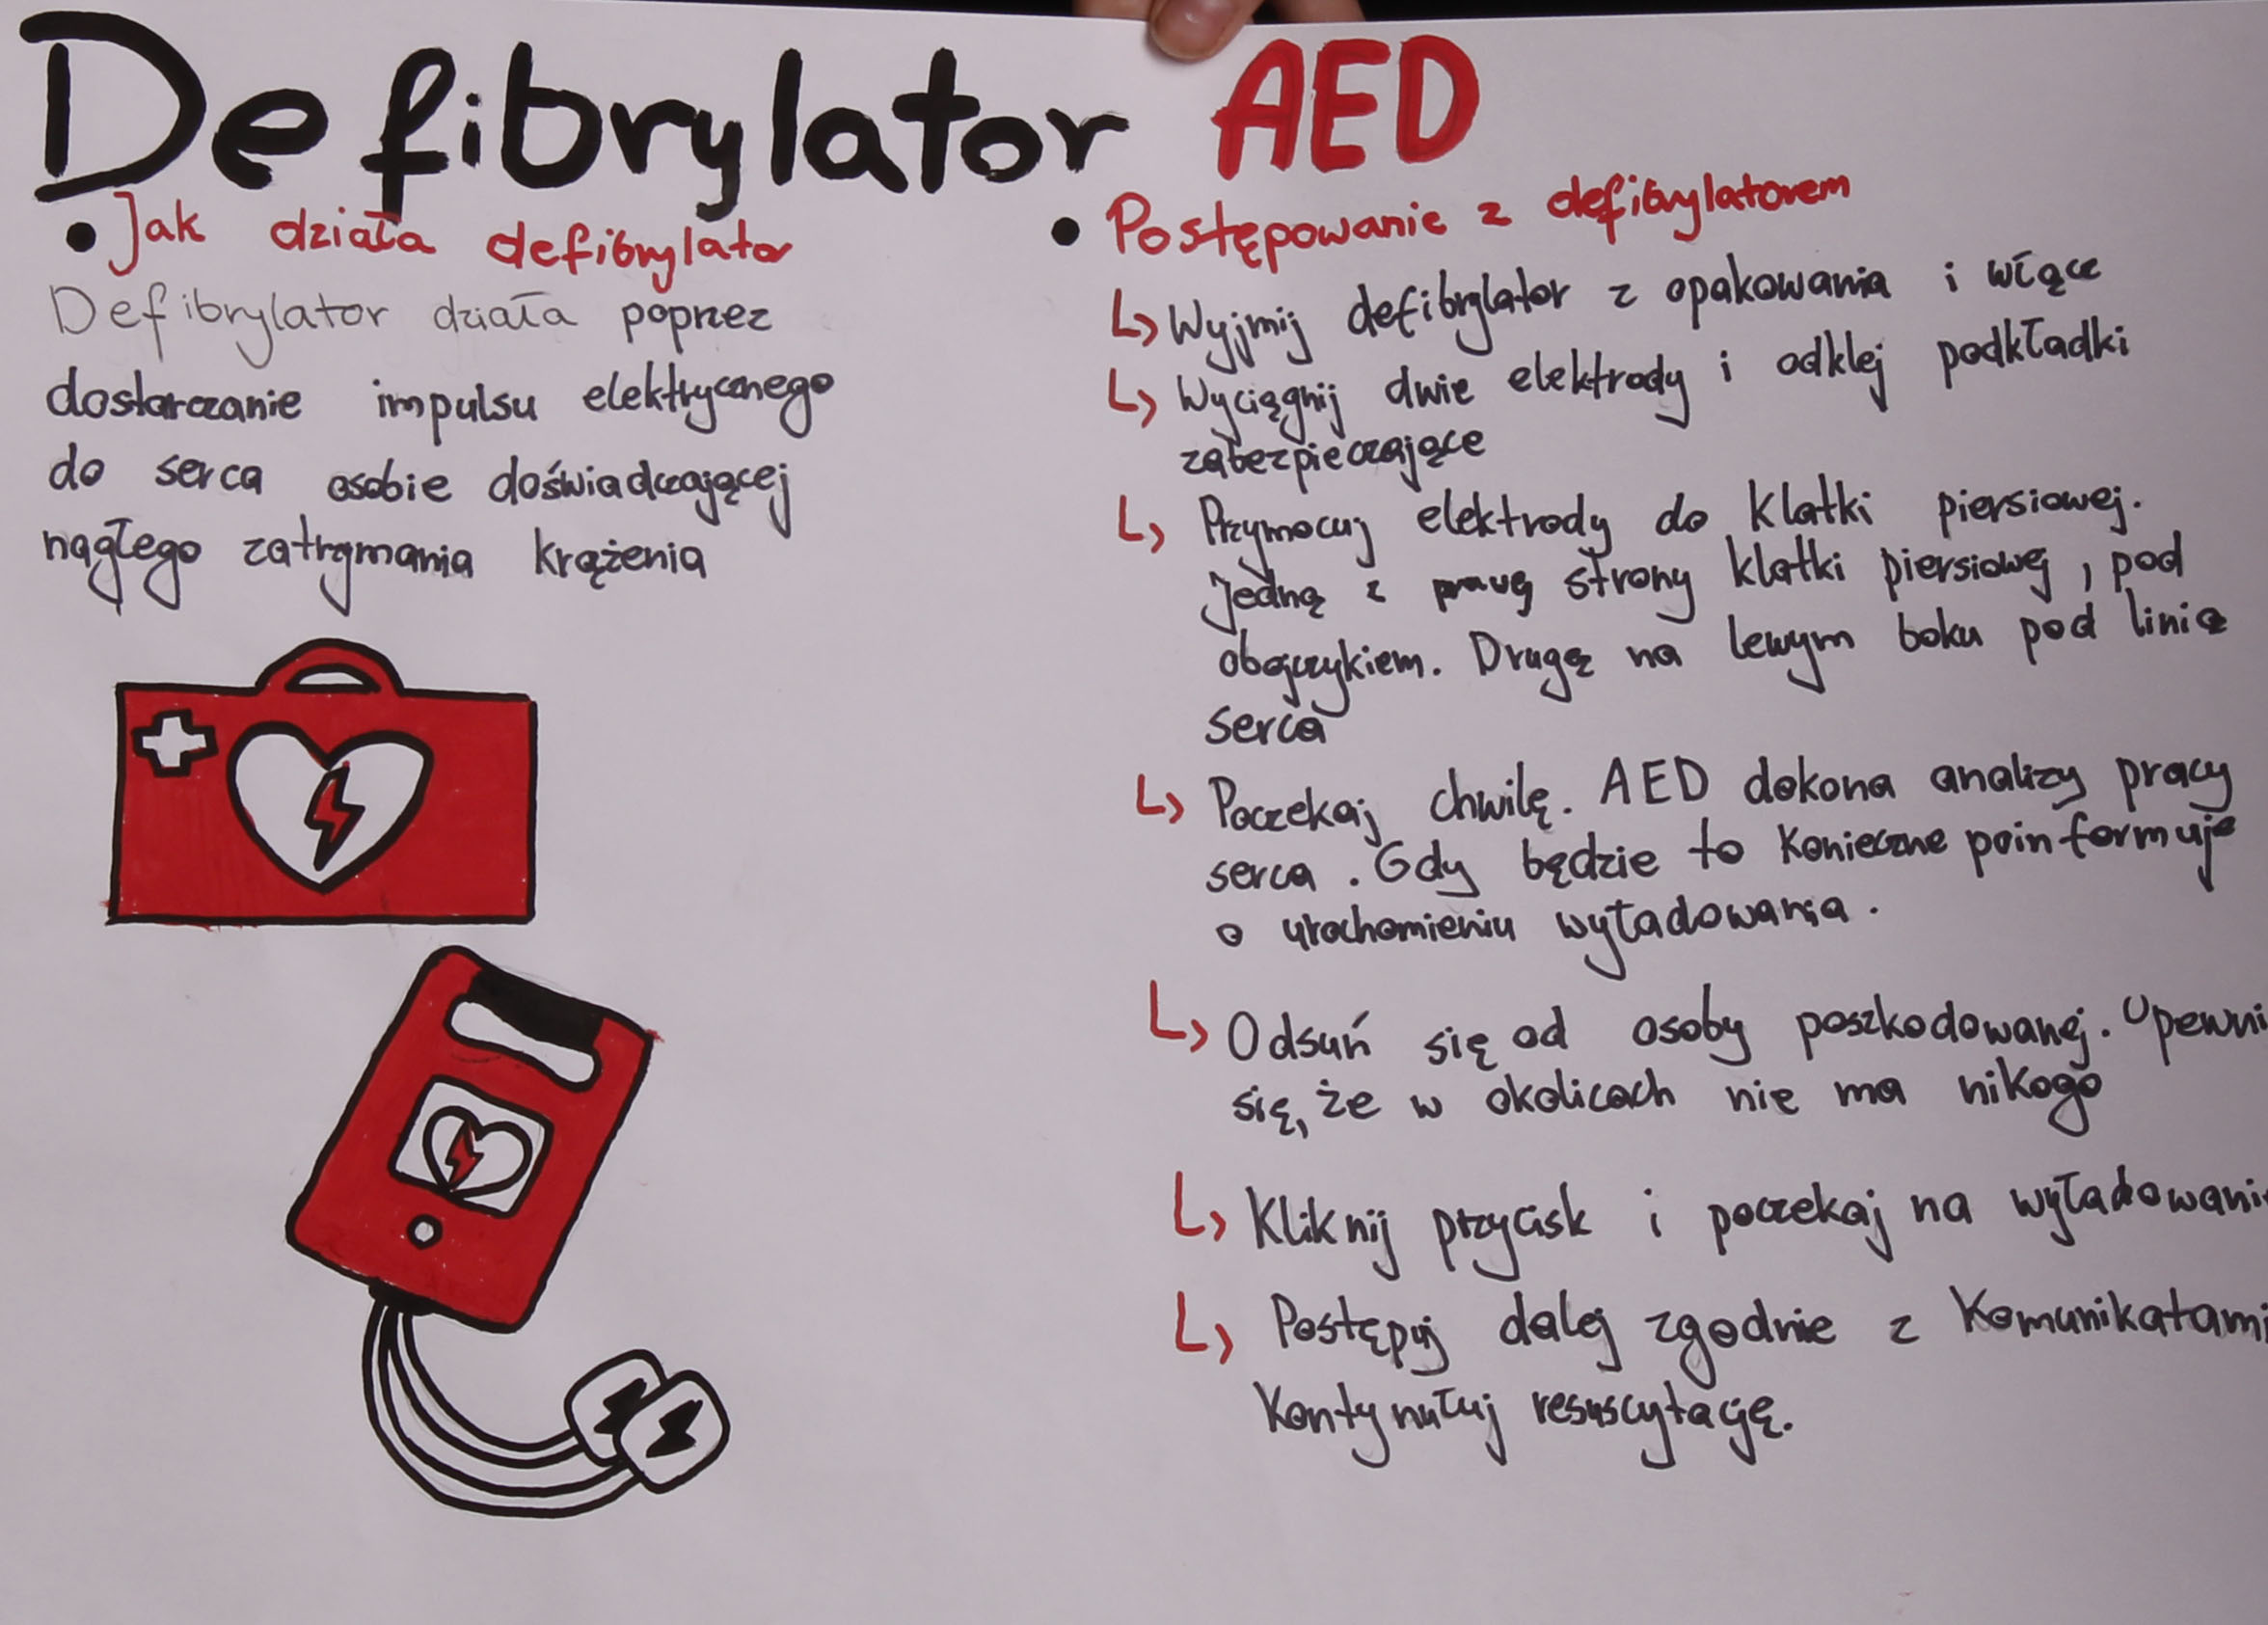 Defibrylator AED
• Jak działa defibrylator
Defibrylator działa poprzez
dostarczanie impulsu elektrycznego
do serca osobie doświadczającej
nagłego zatrzymania krążenia
• Postępowanie z defibrylatorem
↳ Wyjmij defibrylator z opakowania i włącz
↳ Wyciągnij dwie elektrody i odklej podkładki
zabezpieczające
↳ Przymocuj elektrody do klatki piersiowej.
Jedną z prawej strony klatki piersiowej, pod
obojczykiem. Drugą na lewym boku pod linią
serca
↳ Poczekaj chwilę. AED dokona analizy pracy
serca. Gdy będzie to konieczne poinformuje
o uruchomieniu wyładowania.
↳ Odsuń się od osoby poszkodowanej. Upewni
się, że w okolicach nie ma nikogo
↳ Kliknij przycisk i poczekaj na wyładowani
↳ Postępuj dalej zgodnie z komunikatami
Kontynułuj resuscytację.